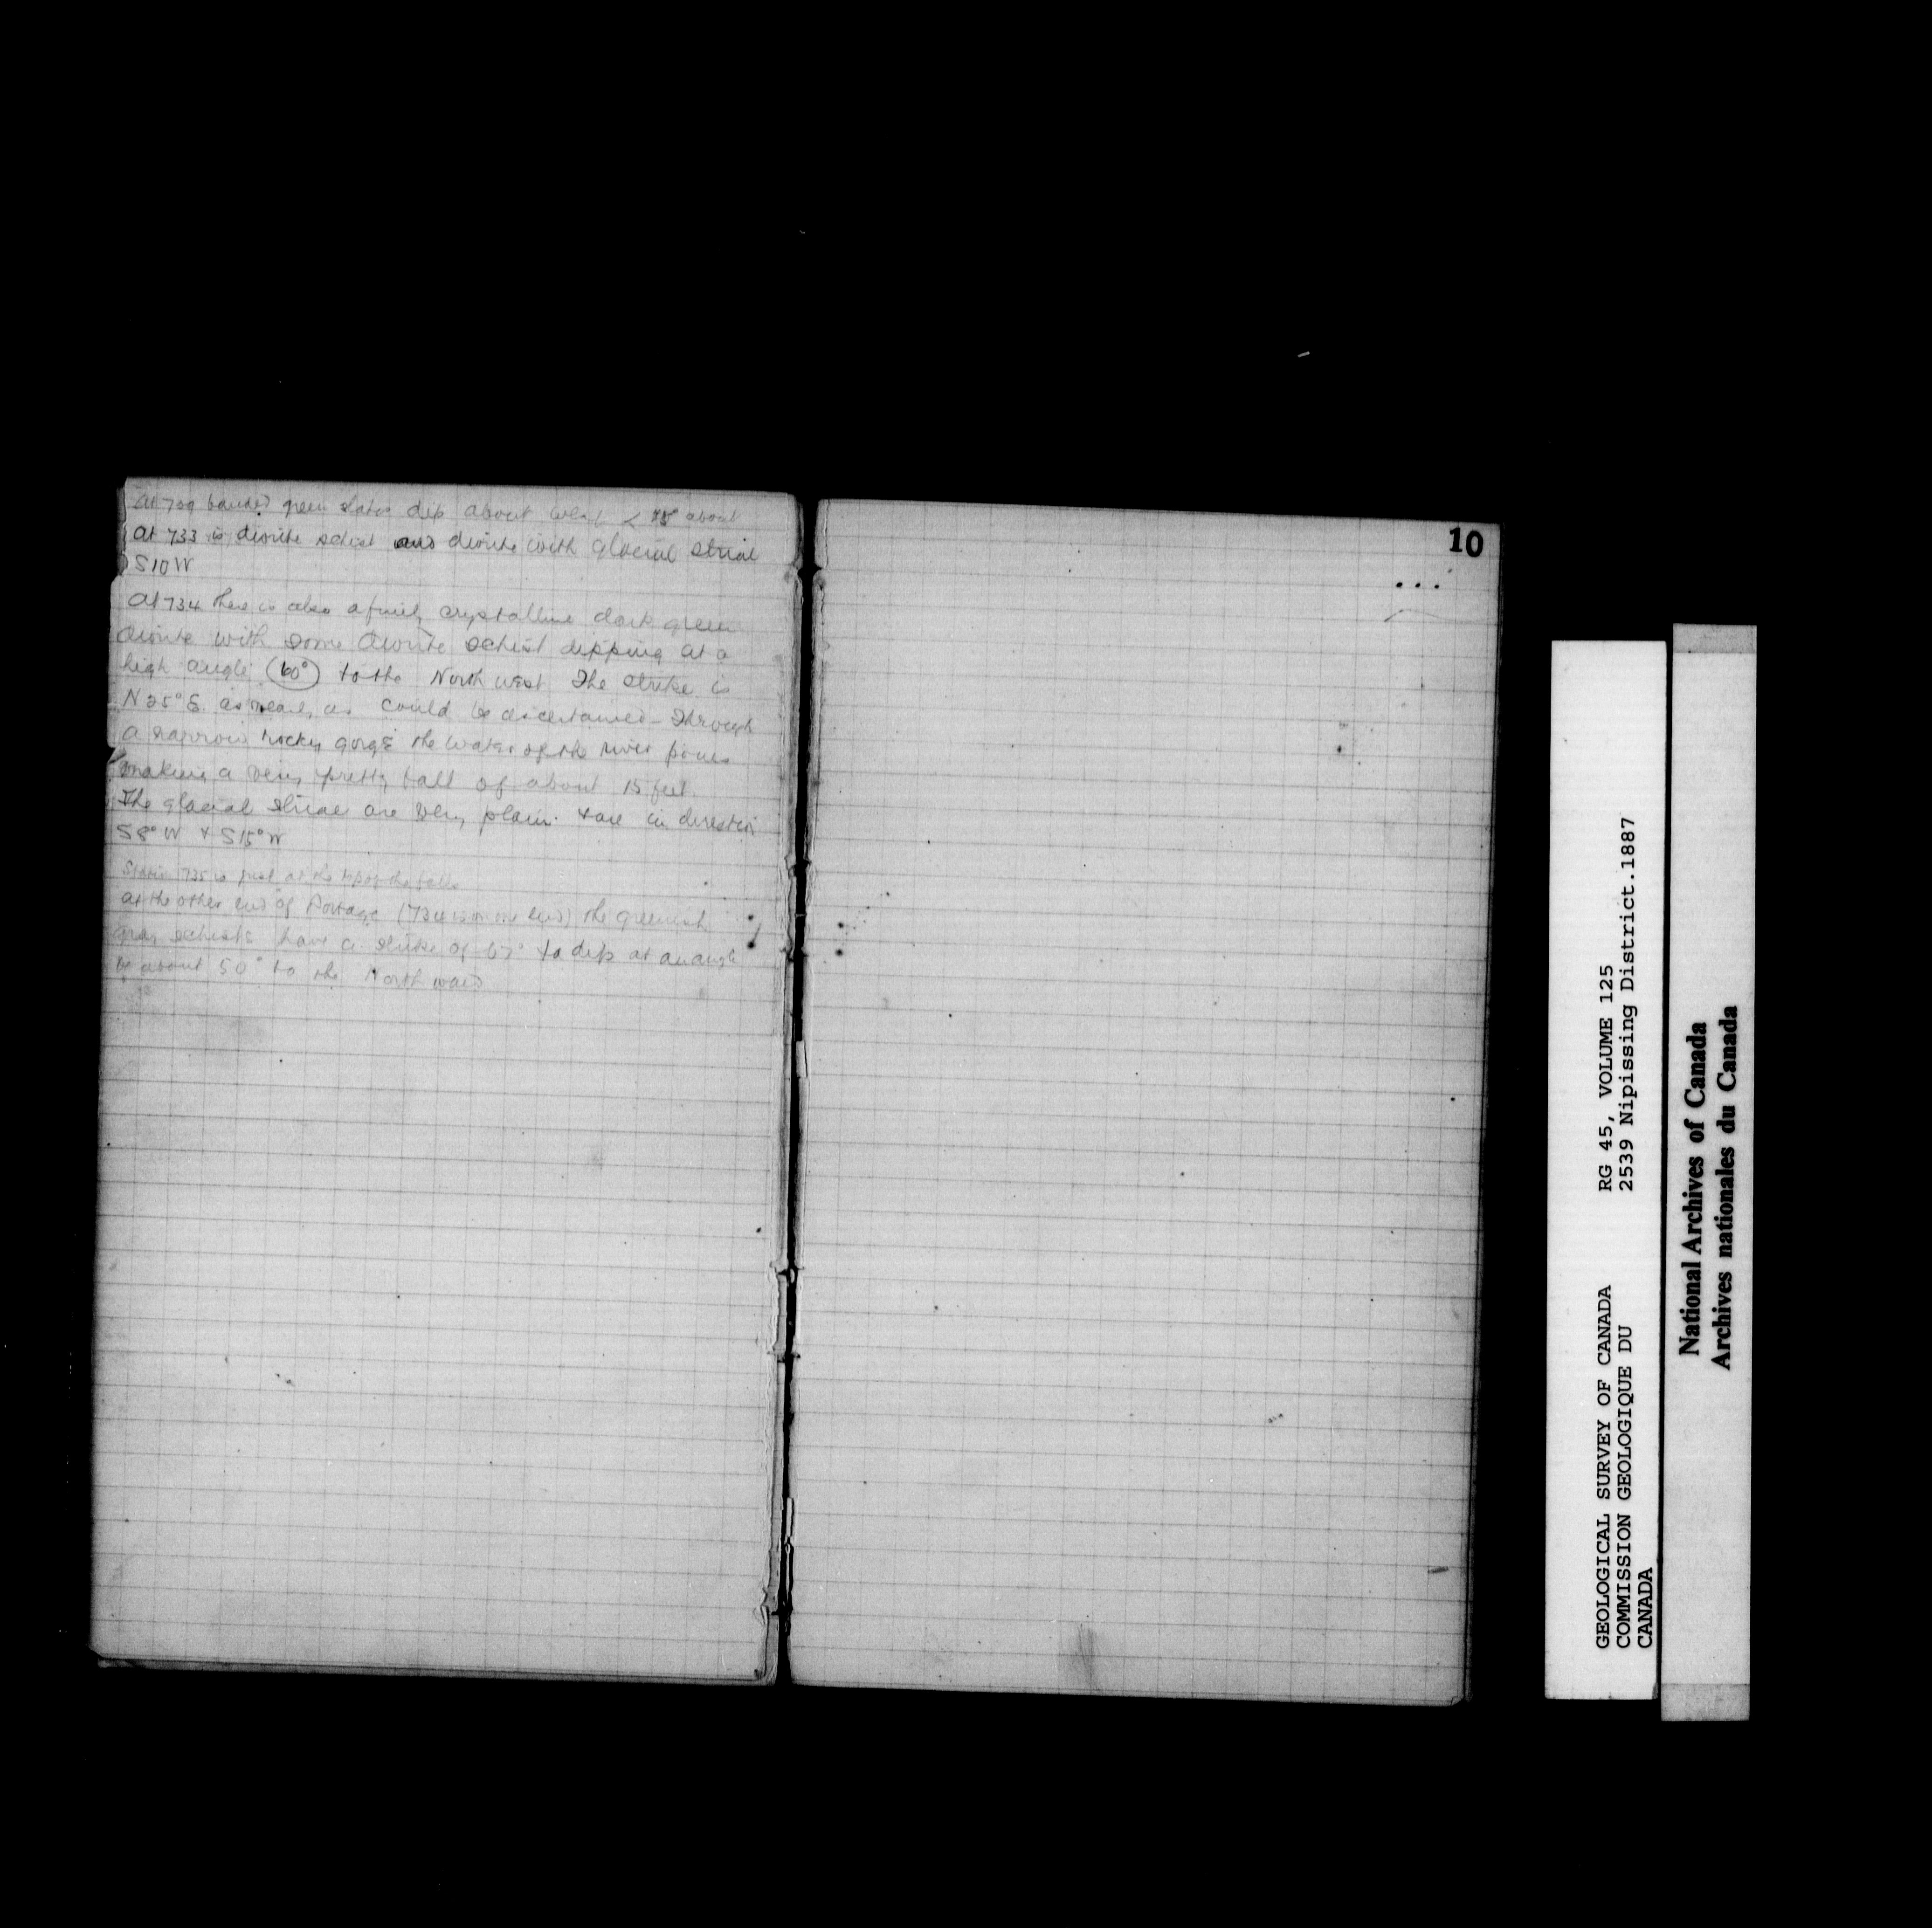 At 709 banded green slates dip about West < 75° about
At 733 is diorite schist and diorite with glacial striae
S10W
At 734 there is also a finely crystalline dark green
diorite with some diorite schist dipping at a
high angle (60°) to the North west The strike is
N25°E. as nearly as could be ascertained - Through
a narrow rocky gorge the water of the river pours
making a very pretty fall of about 15 feet.
The glacial striae are very plain. & are in direction
S8°W & S15°W
Station 735 is just at the top of the falls
At the other end of Portage (734 is on one end) the greenish
gray schists have a strike of 67° to dip at an angle
about 50° to the North ward
10
GEOLOGICAL SURVEY OF CANADA
COMMISSION GEOLOGIQUE DU
CANADA
RG 45, VOLUME 125
2539 Nipissing District.1887
National Archives of Canada
Archives nationales du Canada